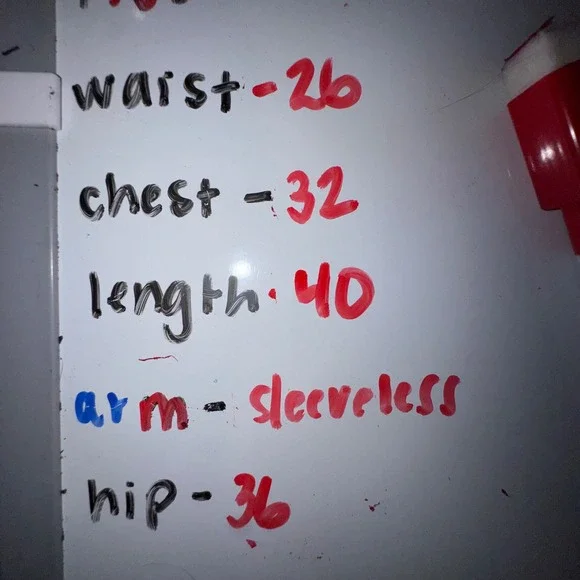 waist - 26
chest - 32
length - 40
arm - sleeveless
hip - 36